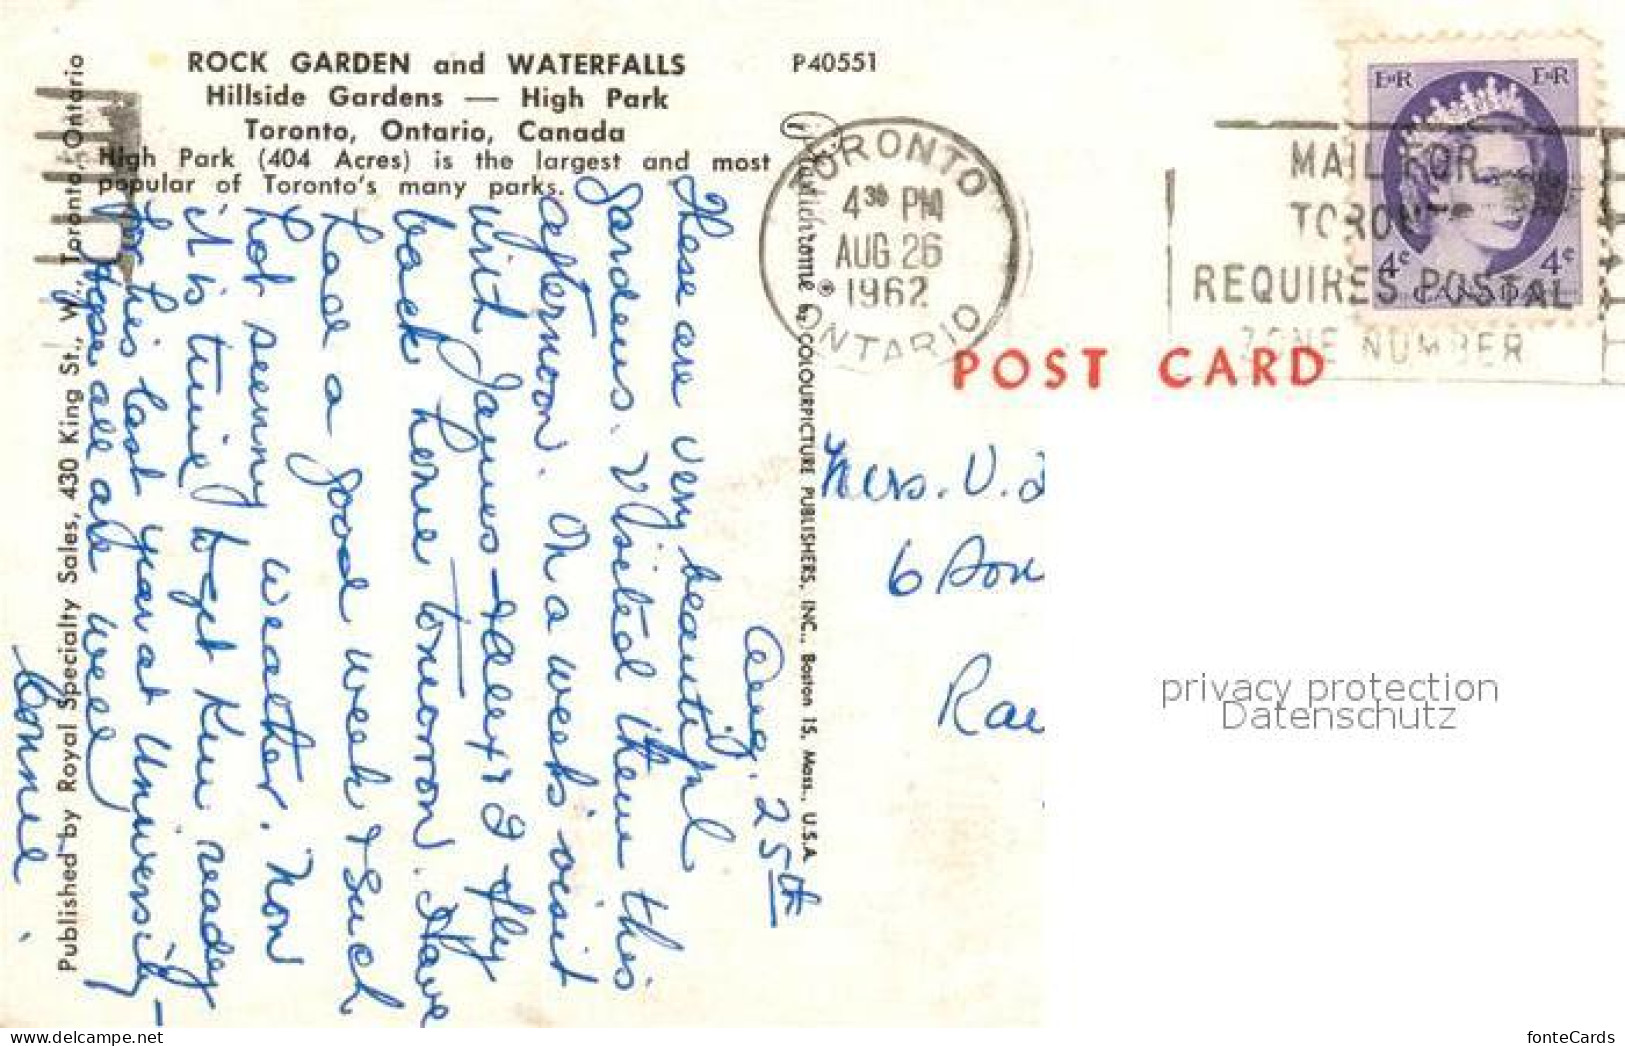 ROCK GARDEN and WATERFALLS
Hillside Gardens — High Park
Toronto, Ontario, Canada
High Park (404 Acres) is the largest and most
popular of Toronto's many parks.
P40551
Aug. 25th
These are very beautiful
Gardens. Visited them this
afternoon. On a week's visit
with James & Alex & I fly
back home tomorrow. Have
had a good week & such
hot weather. Now
it is time to get Ken ready
for his last year at University –
Hope all are well
Connie.
Published by Royal Specialty Sales, 430 King St., W., Toronto, Ontario
Plastichrome ® by COLOURPICTURE PUBLISHERS, INC., Boston 15, Mass., U.S.A.
TORONTO
4 30 PM
AUG 26
1962
ONTARIO
MAIL FOR
TORONTO
REQUIRES POSTAL
ZONE NUMBER
E R E R
4c 4c
CANADA
POST CARD
Mrs. V.
6
privacy protection
Datenschutz
fonteCards